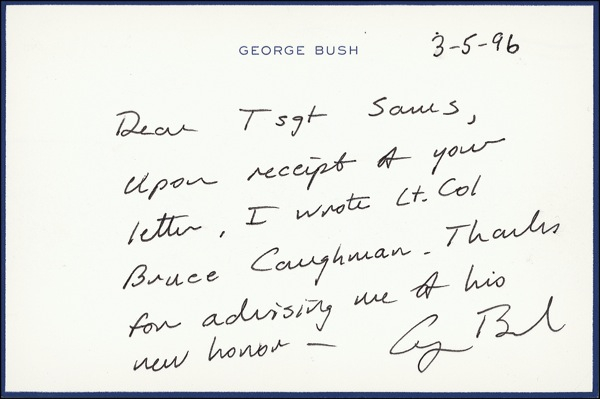 GEORGE BUSH
3-5-96
Dear Tsgt Sams,
Upon receipt of your
letter, I wrote Lt. Col
Bruce Caughman - Thanks
for advising me of his
new honor -
G Bush